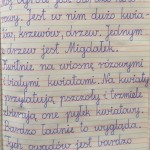 rowy. Jest w nim dużo kwia-
tów, krzewów, drzew. Jednym
z drzew jest Migdałek.
Kwitnie na wiosnę różowymi
kwiatami. Na kwiaty
przylatują pszczoły i trzmiele
zbierają one pyłek kwiatowy.
Bardzo ładnie to wygląda.
owadów jest bardzo